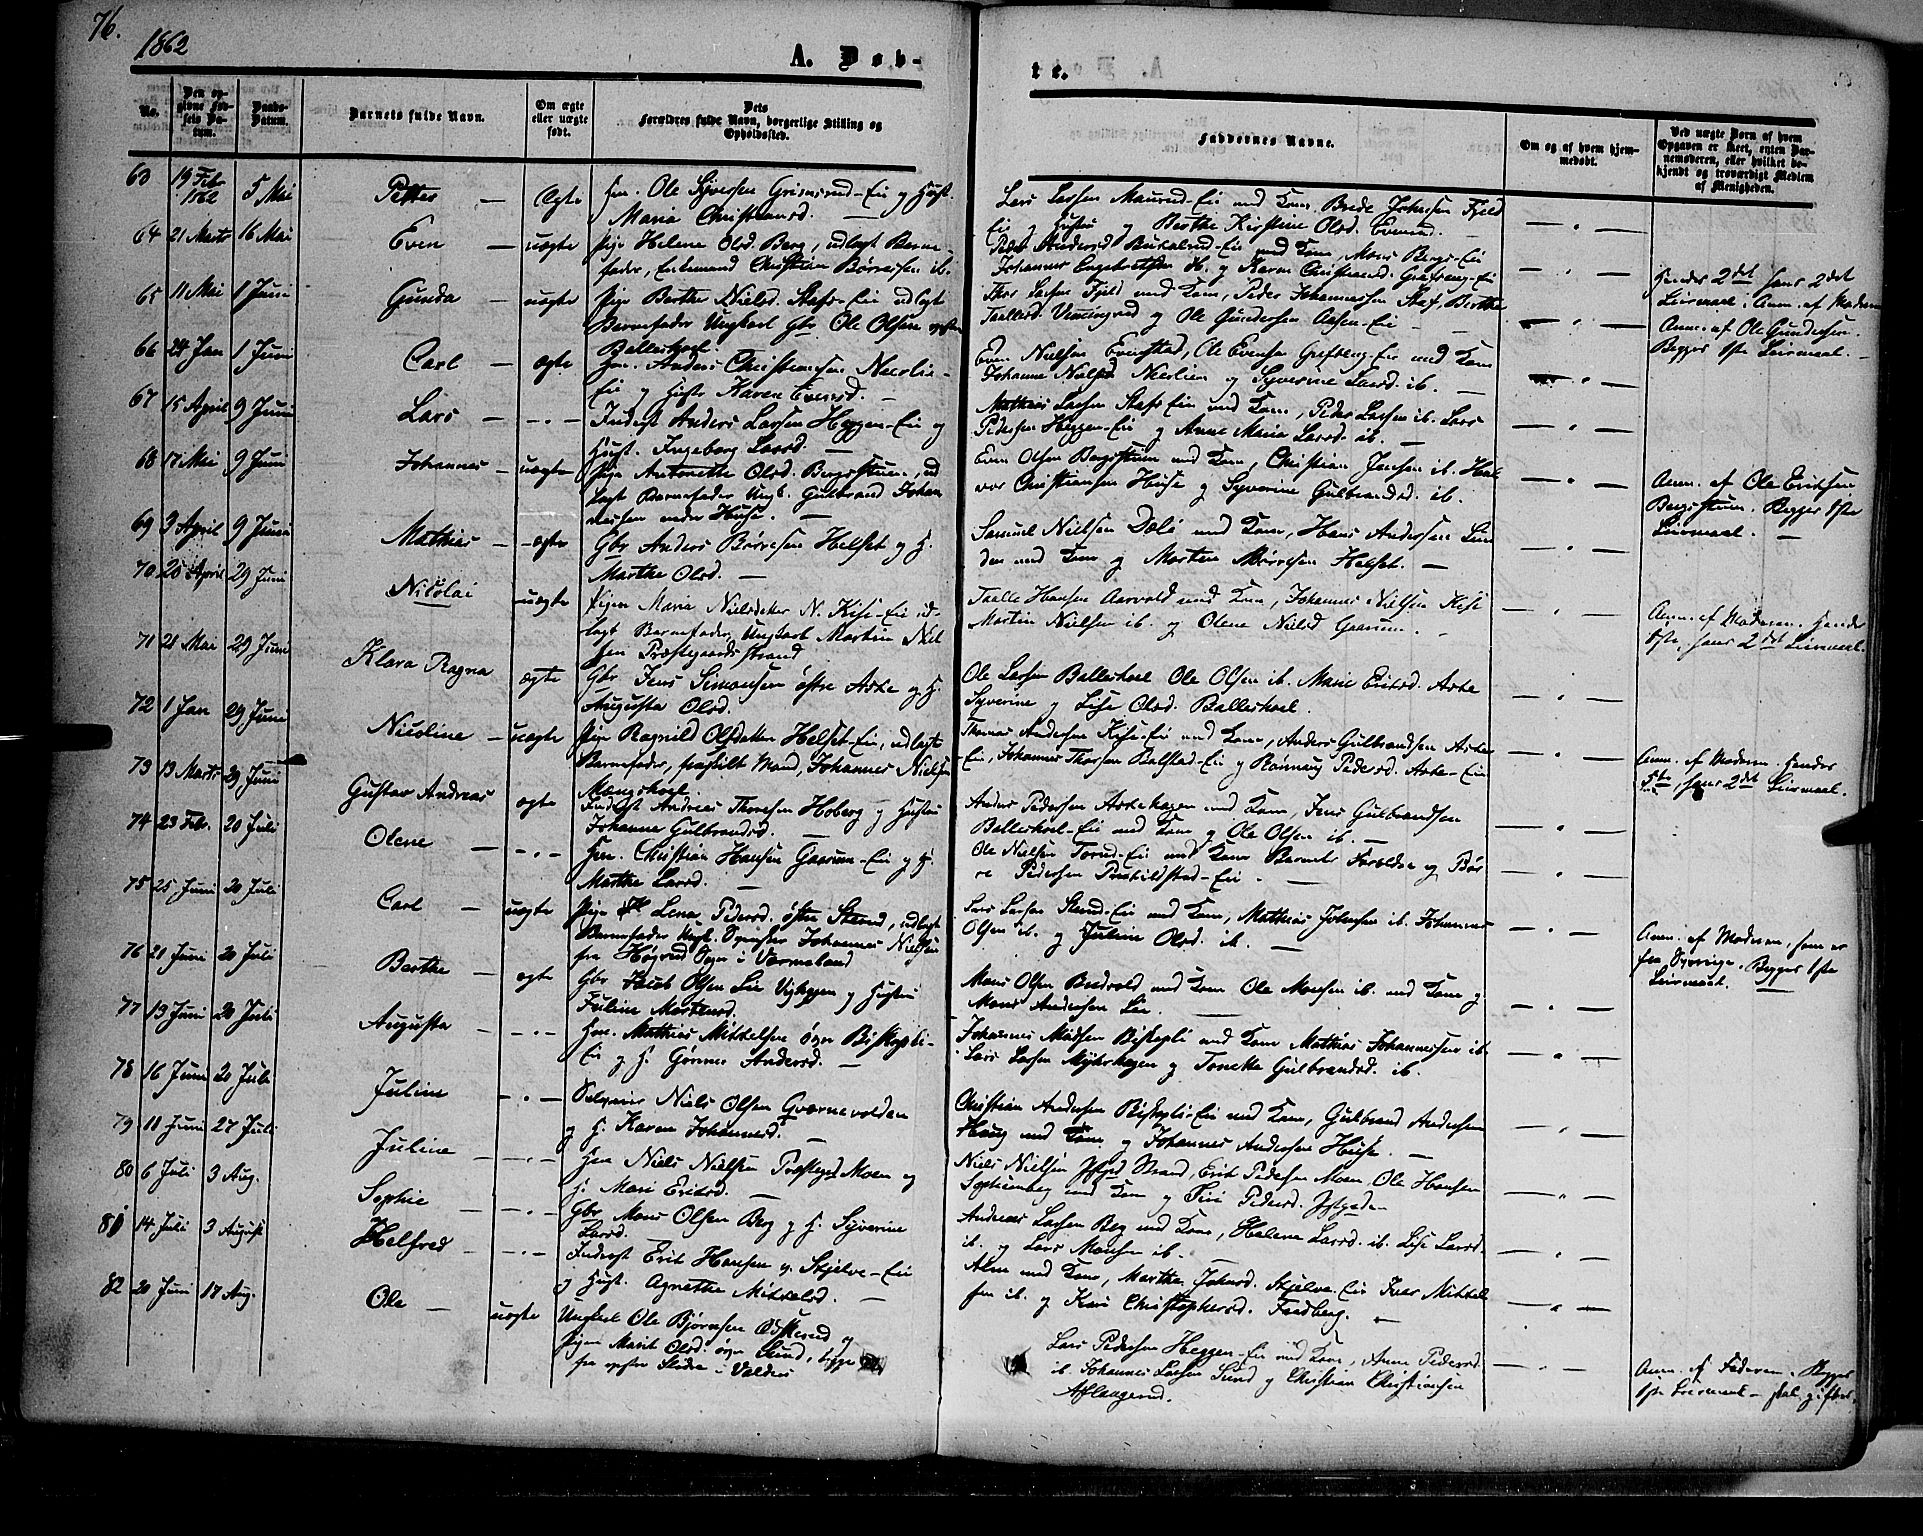 76.
1862
A. Døb-
te.
No.
Den op-
givne Fød-
sels Da-
tum.
Daabs-
Datum.
Barnets fulde Navn.
Om ægte
eller uægte
født.
Dets
Forældres fulde Navn, borgerlige Stilling og
Opholdssted.
Faddernes Navne.
Om og af hvem hjem-
medøbt.
Ved uægte Børn af hvem
Opgaven er skeet, enten Bar-
nemoderen, eller hvilket be-
kjendt og troværdigt Medlem
af Menigheden.
63 19 Febr 1862 5 Mai Petter — Ægte Hm. Ole Syversen Grimsrud-Eie og Hust.
Maria Christiansd. —
Lars Larsen Maurud-Eie med Kone, Brede Johnsen Fjeld
Eie og Hustru og Berthe Kirstine Olsd. Evensd.
64 21 Marts 16 Mai Even — uægte Pige Helene Olsd. Berg, udlagt Barne-
fader, Enkemand Christian Børresen ib.
Peder Andersd. med Kone, Mons Bergs-Eie
Johannes Engebretsen H. og Karen Christiansd. Grefseng-Eie
Hendes 2det hans 2det
Leiermaal. Anm. af Moderen
65 11 Mai 1 Juni Gunda — uægte Pige Berthe Nielsd. Staf-Eie udlagt
Barnefader Ungkarl Gbr Ole Olsen
Ballishoel
Thor Larsen Fjeld med Kone, Peder Johannessen Staf, Berthe
Taallesd. og Ole Gundersen Aasen-Eie
Anm. af Ole Gundersen.
Begges 1ste Leiermaal. —
66 24 Jan 1 Juni Carl — ægte Hm. Anders Christiansen Neerlie-
Eie og Hustr. Karen Evensd. —
Even Nielsen Evenstad, Ole Evensen Grefseng-Eie med Kone
Johanne Nielsd. Neerlien og Syverine Larsd. ib. —
67 15 April 9 Juni Lars — " — Inderst Anders Larsen Heggen-Eie og
Hust. Ingeborg Larsd. —
Mathias Larsen Stafs Eie med Kone, Peder Larsen ib. Lars
Pedersen Heggen-Eie og Anne Maria Larsd. ib. —
68 17 Mai 9 Juni Johannes — uægte Pige Antonette Olsd. Bergsstuen, ud
lagt Barnefader Ungk. Gulbrand Johan
nessen nedre Huse. —
Even Olsen Bergsstuen med Kone, Christian Jensen ib. Hal
vor Christiansen Huse og Syverine Gulbrandsd. ib.
Anm. af Ole Eriksen
Bergsstuen. Begges 1ste
Leiermaal. —
69 3 April 9 Juni Mathias — ægte Gbr Anders Børresen Helset og H.
Marthe Olsd. —
Samuel Nielsen Dæli med Kone, Hans Andersen Lun
den med Kone og Morten Børresen Helset. —
70 20 April 29 Juni Nicolai uægte Pigen Maria Nielsdatter N. Kise-Eie ud-
lagt Barnefader, Ungkarl Martin Niel
sen Præstegaardsstrand
Taalle Hansen Aarvold med Kone, Johannes Nielsen Kise
Martin Nielsen ib. og Olene Nielsd. Gaarum. —
Anm. af Moderen. Hendes
1ste, hans 2det Leiermaal.
71 21 Mai 29 Juni Klara Ragna ægte Gbr Jens Simonsen østre Aske og H.
Augusta Olsd.
Ole Larsen Ballishoel Ole Olsen ib. Marie Eriksd. Aske
Syverine og Lise Olsd. Ballishoel.
72 1 Jan 29 Juni Nicoline — uægte Pige Ragnild Olsdatter Helset-Eie, udlagte
Barnefader, fraskilt Mand, Johannes Nielsen
Mængshoel.
Thomas Andersen Kise-Eie med Kone, Anders Gulbrandsen Aske
-Eie, Johannes Thorsen Balstad-Eie og Rønnaug Pedersd. Aske-Eie
Anm. af Moderen. Hendes
5te, hans 2det Leiermaal.
73 13 Marts 29 Juni Gustav Andreas ægte Inderst Andreas Thoresen Hoberg og Hustru
Johanne Gulbrandsd. —
Anders Pedersen Askehagen med Kone, Jens Gulbrandsen
Ballishoel-Eie med Kone og Ole Olsen ib. —
74 23 Feb. 20 Juli Olene — " — Hm. Christian Hansen Gaarum-Eie og H.
Marthe Larsd. —
Ole Nielsen Torud-Eie med Kone Barnets Forældre og Bør
re Pedersen -Eie. —
75 25 Juni 20 Juli Carl — uægte Pige Lena Pedersd. østre Strand, udlagt
Barnefader Ungk. Svensker Johannes Nielsen
fra Høgrud Sogn i Værmeland
Lars Larsen Strand-Eie med Kone, Mathias Johnsen ib. Johannes
Olsen ib. og Juline Olsd. ib. —
Anm. af Moderen, som er
fra Sverrige. Begges 1ste
Leiermaal. —
76 21 Juni 20 Juli Berthe — ægte Gbr Jacob Olsen Lie og Hustru
Pauline Mortensd.
Mons Olsen Budvold med Kone Ole Monsen ib. med Kone og
Mons Andersen Lie. —
77 13 Juni 20 Juli Augusta — " — Hm. Mathias Mikkelsen øvre Biskopli-
Eie og H. Gønner Andersd. —
Johannes Madsen Biskopli med Kone Mathias Johannessen ib.
Lars Larsen Myhrhagen og Tonette Gulbrandsd. ib.
78 16 Juni 20 Juli Juline — " — Selveier Niels Olsen Qværnevolden
og H. Karen Johannesd. —
Christian Andersen Biskopli-Eie med Kone, Gulbrand Andersen
Haug med Kone og Johannes Andersen Huse. —
79 11 Juni 27 Juli Juline — " — Hm Niels Nielsen Præstegd Moen og
H. Mari Eriksd. —
Niels Nielsen Pstgd Strand, Erik Pedersen Moen Ole Hansen
Sophienberg med Kone og Siri Pedersd. Pstgd.
80 6 Juli 3 Aug. Sophie — " — Gbr Mons Olsen Berg og H. Syverine
Larsd.
Andreas Larsen Berg med Kone, Helene Larsd. ib. Lise Larsd.
ib. og Lars Monsen ib. —
81 14 Juli 3 August Helfred — " — Inderst Erik Hansen n. Skjelve-Eie
og Hust. Agnethe Mikkelsd. —
Alm med Kone, Marthe Johnsd. Skjelve-Eie Iver Mikkel
sen ib. og Kari Christophersd. Fredberg. —
82 20 Juni 17 Aug. Ole — uægte Ungkarl Ole Bjørnsen Ødskerud og
Pigen Marit Olsd. øvre Sund, begge
fra Slidre i Valders
Lars Pedersen Heggen-Eie med Kone, Anne Pedersd.
ib. Johannes Larsen Sund og Christian Christiansen
Aflangerud.
Anm. af Faderen. Begges
1ste Leiermaal — skal giftes.